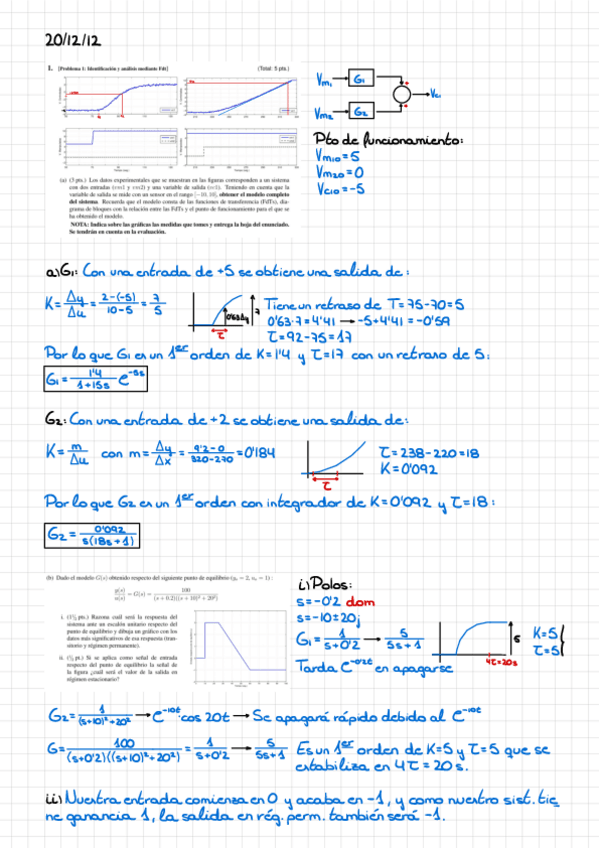 20/12/12
1. [Problema 1: Identificación y análisis mediante Fdt] (Total: 5 pts.)
Vm1 G1
Vc1
Vm2 G2
Pto de funcionamiento:
Vm10=5
Vm20=0
Vc10=-5
(a) (3 pts.) Los datos experimentales que se muestran en las figuras corresponden a un sistema
con dos entradas (vm1 y vm2) y una variable de salida (vc1). Teniendo en cuenta que la
variable de salida se mide con un sensor en el rango [−10, 10], obtener el modelo completo
del sistema. Recuerda que el modelo consta de las funciones de transferencia (FdTs), dia-
grama de bloques con la relación entre las FdTs y el punto de funcionamiento para el que se
ha obtenido el modelo.
NOTA: Indica sobre las gráficas las medidas que tomes y entrega la hoja del enunciado.
Se tendrán en cuenta en la evaluación.
a) G1: Con una entrada de +5 se obtiene una salida de:
K = Δy/Δu = 2-(-5)/10-5 = 7/5
0'63Δy 7
τ
Tiene un retraso de T=75-70=5
0'63·7=4'41 → -5+4'41=-0'59
τ=92-75=17
Por lo que G1 es un 1er orden de K=1'4 y τ=17 con un retraso de 5:
G1 = 1'4/1+15s e^-5s
G2: Con una entrada de +2 se obtiene una salida de:
K = m/Δu con m = Δy/Δx = 9'2-0/320-270 = 0'184
τ
τ=238-220=18
K=0'092
Por lo que G2 es un 1er orden con integrador de K=0'092 y τ=18:
G2 = 0'092/s(18s+1)
(b) Dado el modelo G(s) obtenido respecto del siguiente punto de equilibrio (y₀ = 2, u₀ = 1) :
y(s)/u(s) = G(s) = 100/(s + 0.2)((s + 10)² + 20²)
i. (1½ pts.) Razona cuál será la respuesta del
sistema ante un escalón unitario respecto del
punto de equilibrio y dibuja un gráfico con los
datos más significativos de esa respuesta (tran-
sitorio y régimen permanente).
ii. (½ pts.) Si se aplica como señal de entrada
respecto del punto de equilibrio la señal de
la figura ¿cuál será el valor de la salida en
régimen estacionario?
i) Polos:
s=-0'2 dom
s=-10±20j
G1 = 1/s+0'2 → 5/5s+1
5
4τ=20s
K=5
τ=5
Tarda e^-0'2t en apagarse
G2 = 1/(s+10)²+20² → e^-10t·cos 20t → Se apagará rápido debido al e^-10t
G = 100/(s+0'2)((s+10)²+20²) = 1/s+0'2 → 5/5s+1 Es un 1er orden de K=5 y τ=5 que se
estabiliza en 4τ=20s.
ii) Nuestra entrada comienza en 0 y acaba en -1, y como nuestro sist. tie
ne ganancia 1, la salida en rég. perm. también será -1.